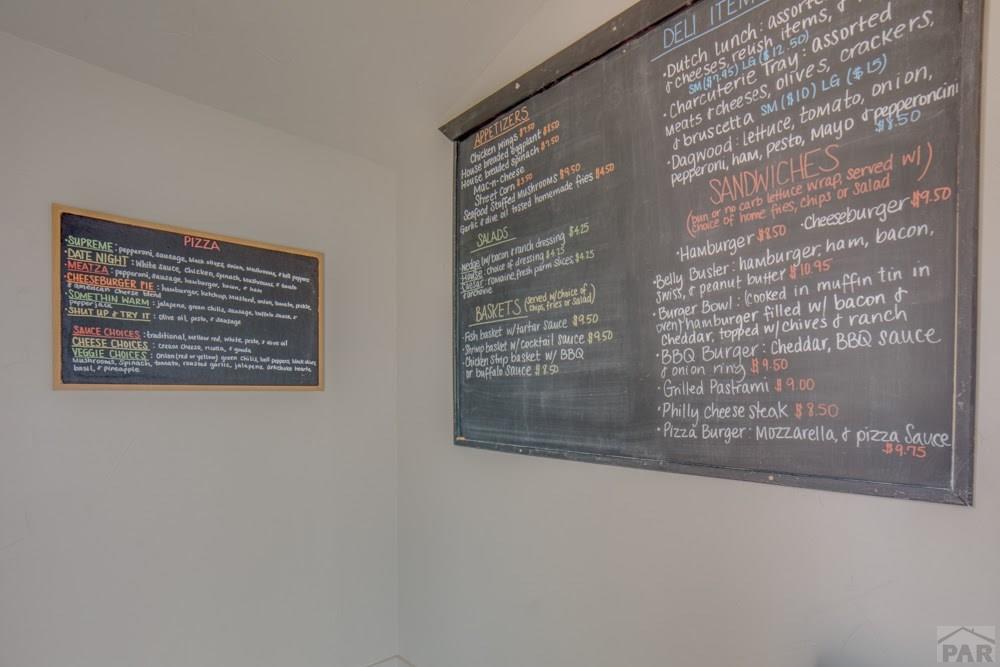 PIZZA
·SUPREME: pepperoni, sausage, black olives, onion, mushrooms, & bell peppers
·DATE NIGHT: White sauce, chicken, spinach, mushrooms, & tomato
·MEATZA: pepperoni, sausage, hamburger, bacon, & ham
·CHEESEBURGER PIE: hamburger, ketchup, mustard, onion, tomato, pickle,
& american cheese blend
·SOMETHIN WARM: jalapeno, green chilis, sausage, buffalo sauce, &
pepperjack
·SHUT UP & TRY IT: olive oil, pesto, & sausage
SAUCE CHOICES: traditional, mellow red, white, pesto, & olive oil
CHEESE CHOICES: cream cheese, ricotta, & gouda
VEGGIE CHOICES: Onion (red or yellow) green chilis, bell peppers, black olives,
mushrooms, spinach, tomato, roasted garlic, jalapeno, artichoke hearts,
basil, & pineapple
APPETIZERS
Chicken wings $7.50
House breaded eggplant $8.50
House breaded spinach $7.50
Mac-n-cheese
Street Corn $3.50
Seafood Stuffed Mushrooms $9.50
Garlic & olive oil tossed homemade fries $4.50
SALADS
Wedge w/bacon & ranch dressing $4.25
House: choice of dressing $4.25
Caesar: romaine, fresh parm slices, $4.25
BASKETS (served w/choice of
chips, fries or salad)
·Fish basket w/tartar sauce $9.50
·Shrimp basket w/ cocktail sauce $9.50
·Chicken Strip basket w/ BBQ
or buffalo sauce $8.50
DELI ITEMS
·Dutch lunch: assorted
& cheeses, relish items, &
SM ($7.95) LG ($12.50)
·Charcuterie Tray: assorted
meats & cheeses, olives, crackers,
& bruscetta SM ($10) LG ($15)
·Dagwood: lettuce, tomato, onion,
pepperoni, ham, pesto, Mayo & pepperoncini
$8.50
SANDWICHES
(bun or no carb lettuce wrap, served w/)
choice of home fries, chips or salad
·Hamburger $8.50 ·Cheeseburger $9.50
·Belly Buster: hamburger, ham, bacon,
swiss, & peanut butter $10.95
·Burger Bowl: (cooked in muffin tin in
oven) hamburger filled w/ bacon &
cheddar, topped w/ chives & ranch
·BBQ Burger: Cheddar, BBQ sauce
& onion ring $9.50
·Grilled Pastrami $9.00
·Philly cheese steak $8.50
·Pizza Burger: Mozzarella, & pizza Sauce
$9.75
PAR